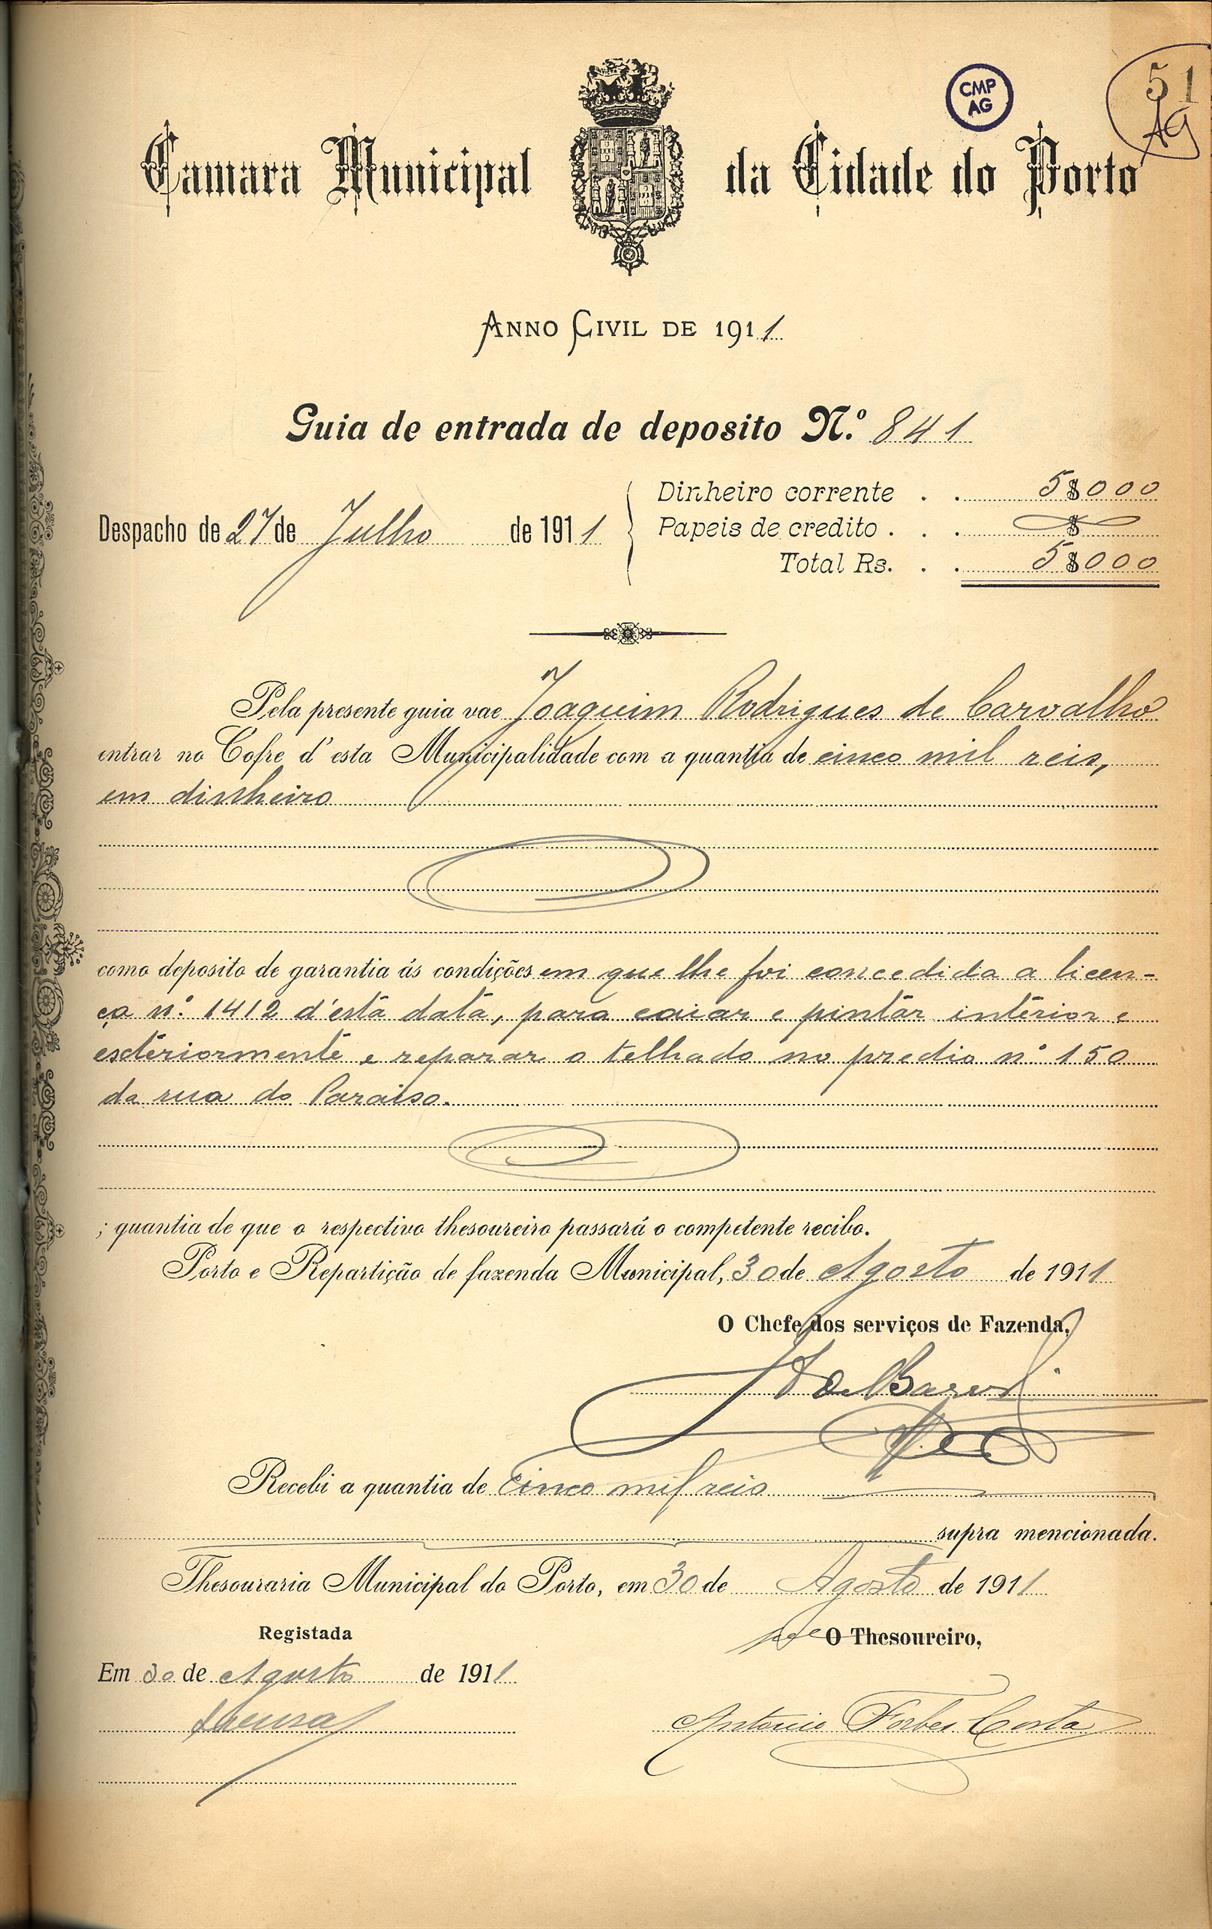 CMP
AG
51
AG
Camara Municipal da Cidade do Porto
Anno Civil de 1911
Guia de entrada de deposito N.º 841
Despacho de 27 de Julho de 1911
Dinheiro corrente . . 5$000
Papeis de credito . . . $
Total Rs. . . 5$000
Pela presente guia vae Joaquim Rodrigues de Carvalho
entrar no Cofre d'esta Municipalidade com a quantia de cinco mil reis,
em dinheiro
como deposito de garantia ás condições em que lhe foi concedida a licen-
ça n.º 1412 d'esta data, para caiar e pintar interior e
esteriormente e reparar o telhado no predio nº 150
da rua do Paraiso.
; quantia de que o respectivo thesoureiro passará o competente recibo.
Porto e Repartição de fazenda Municipal, 30 de Agosto de 1911
O Chefe dos serviços de Fazenda,
Recebi a quantia de cinco mil reis
supra mencionada.
Thesouraria Municipal do Porto, em 30 de Agosto de 1911
Registada
O Thesoureiro,
Em 30 de Agosto de 1911
Antonio Forbes Costa